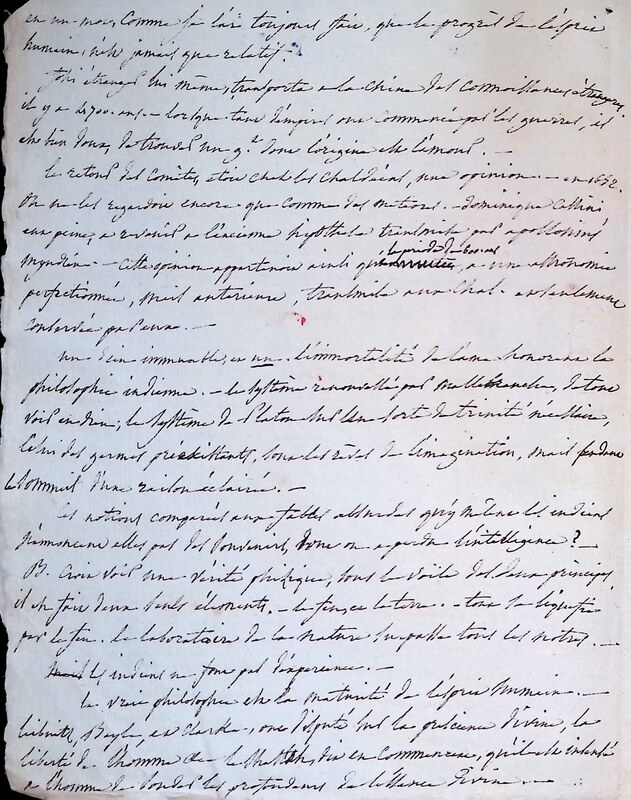 en un mot, comme je l'ai toujours fait, que le progrès de l'esprit
humain, n'est jamais que relatif.
Fohi étranger lui même, transporta a la chine des connoissances étrangeres,
il y a 4700. ans. — lorsque tant d'empires ont commencé par les guerres, il
est bien doux, de trouver un q.d dont l'origine est l'émoul. —
le retour des comètes, étoit chez les chaldéens, une opinion. — en 1652.
on ne les regardoit encore que comme des meteores. — dominique Cassini
eut peine, a revenir a l'ancienne hypothese transmise par apollonius
myndien. — cette opinion appartenoit ainsi que la periode de 600 ans a une astronomie
perfectionnée, mais anterieure, transmise aux Chal. et seulement
conservée par eux. —
un dieu immuable, et un. l'immortalité de l'ame honorent la
philosophie indienne. — le système renouvellé par mallebranche, de tout
voir en dieu; le système de Platon sur une sorte de trinité nécessaire,
celui des germes préexistants, sont les rêves de l'imagination, mais pendant
le sommeil d'une raison éclairée. —
les notions comparées aux fables absurdes qu'y mêlent les indiens
n'annoncent elles pas des souvenirs, dont on a perdu l'intelligence? —
B. croit voir une vérité phisique, sous le voile des deux principes.
il est fait deux seuls éléments. — le feu, et la terre. — tout se liquefie
par le feu. le laboratoire de la nature surpasse tous les notres. —
mais les indiens ne font pas d'expérience. —
la vraie philosophie est la maturité de l'esprit humain. —
leibnitz, Bayle, et Clarke, ont disputé sur la prescience divine, la
liberté de l'homme &c. — le Shastah, dit en commençant, qu'il est interdit
a l'homme de sonder les profondeurs de l'essence divine. —